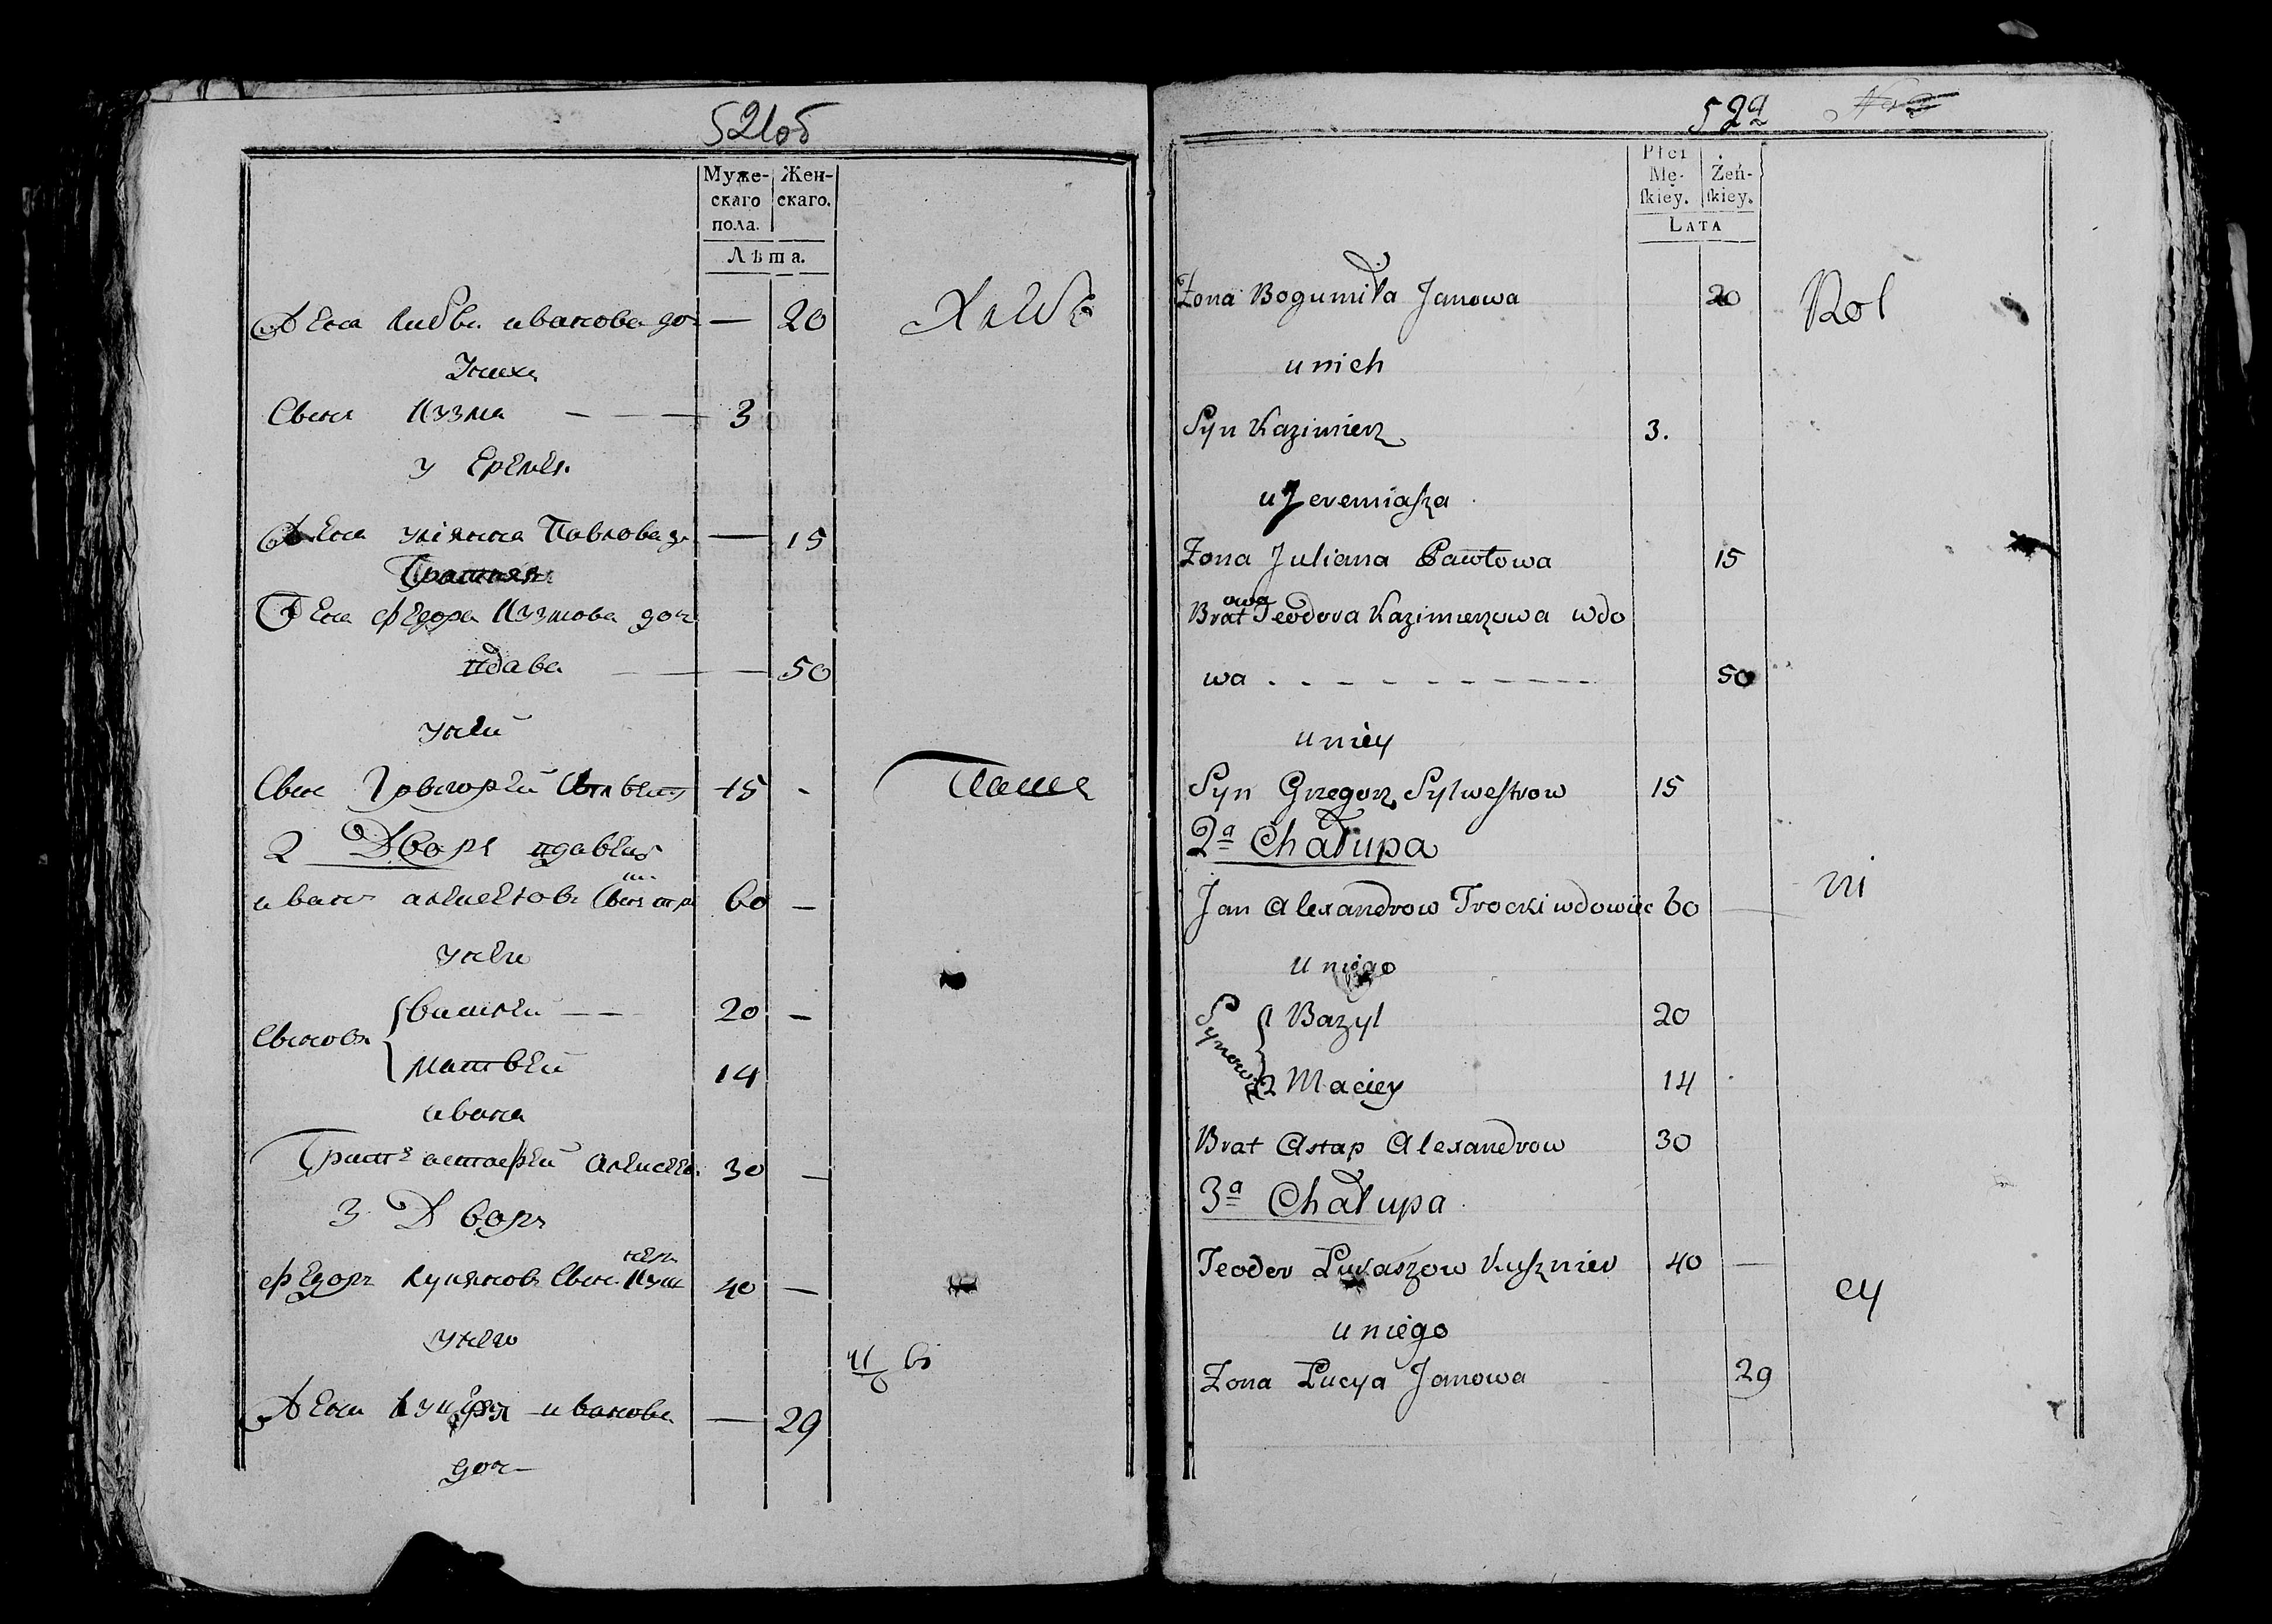 521об
Муже-
скаго
пола.
Жен-
скаго.
Лѣта.
Жена Любва иванова доч — 20
Униха
Свинъ Кузма — — — 3
у Еремея
Жена улiянна Павлова д — 15
Жена федора Кузмова доч
вдава — 50
уней
Свин Григорей 15 -
Паше
2 Дворъ вдавец
иванъ алексеювъ 60 —
унего
Свинов {василей — — 20 —
матвей 14
ивана
Братъ астафей алексеев 30 —
3 Дворъ
федоръ лукянов Свин Куш
нер 40 —
унего
Жена луцея иванова — 29
доч
522
Płci
Mę-
ſkiey.
Żeń-
ſkiey.
LATA
Zona Bogumiła Janowa 20 Rol
u nich
Syn Kazimierz 3.
u Jeremiaſza
Zona Juliana Pawłowa 15
Bratowa Teodora Kazimierzowa wdo
wa . - - - - - - - - - 50
u niey
Syn Grzegorz Sylweſtrow 15
2a Chałupa
Jan Alexandrow Trocki wdowiec 60 — ni
u niego
Synowie {1 Bazyl 20
2 Maciey 14
Brat Astap Alexandrow 30
3a Chałupa
Teodor Łukaszow Kuſznier 40 —
cy
u niego
Zona Łucya Janowa 29